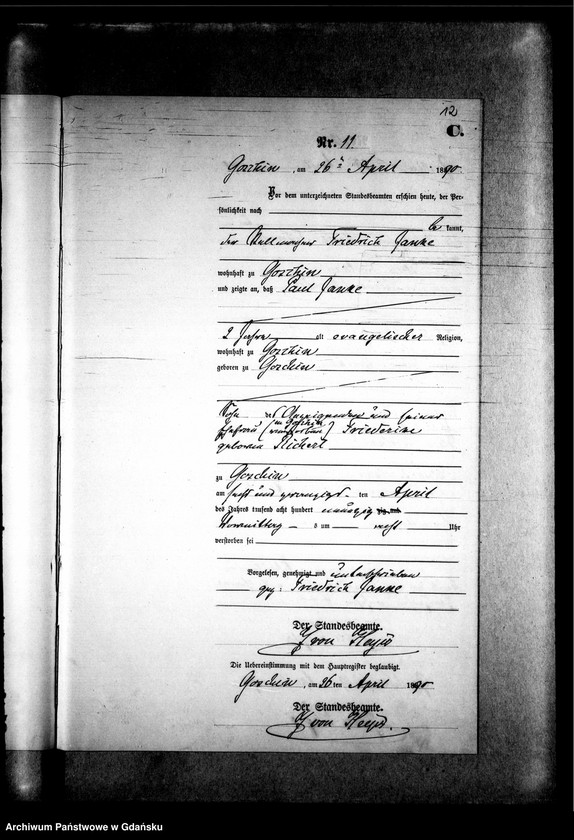 12
C.
Nr. 11
Goschin, am 26ten April 1890
Vor dem unterzeichneten Standesbeamten erschien heute, der Per-
sönlichkeit nach
be kannt,
der Friedrich Janke
wohnhaft zu Goschin
und zeigte an, daß Paul Janke
2 Jahre alt evangelischer Religion,
wohnhaft zu Goschin
geboren zu Goschin
Sohn des Anzeigenden und seiner
Ehefrau (in Goschin verstorben) Friederike
geborenen Richert
zu Goschin
am sechs und zwanzigs- ten April
des Jahres tausend acht hundert neunzig
Vormittags um acht Uhr
verstorben sei
Vorgelesen, genehmigt und unterschrieben
gez: Friedrich Janke
Der Standesbeamte.
von
Die Uebereinstimmung mit dem Hauptregister beglaubigt.
Goschin, am 26 ten April 1890
Der Standesbeamte.
von
Archiwum Państwowe w Gdańsku